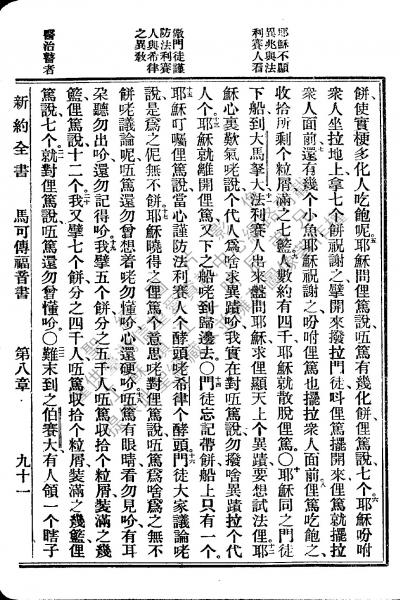 耶穌不顯
異兆與法
利賽人看
警門徒謹
防法利賽
人與希律
之異敎
醫治瞽者
餅使實梗多化人吃飽呢五耶穌問俚篤說唔篤有幾化餅俚篤說七个六耶穌吩咐
衆人坐拉地上拿七个餅祝謝之擘開來撥拉門徒呌俚篤擺開來俚篤就擺拉
衆人面前七還有幾个小魚耶穌祝謝之吩咐俚篤也擺拉衆人面前八俚篤吃飽之
收拾所剩个粒屑滿之七籃九人數約有四千耶穌就散脫俚篤〇十耶穌同之門徒
下船到大馬拏大十一法利賽人出來盤問耶穌求俚顯天上个異蹟要想試法俚十二耶
穌心裏歎氣咾說个代人爲啥求異蹟吤我實在對唔篤說勿撥啥異蹟拉个代
人个十三耶穌就離開俚篤又下之船咾到歸邊去〇十四門徒忘記帶餅船上只有一个
十五耶穌叮囑俚篤說當心謹防法利賽人个酵頭咾希律个酵頭十六門徒大家議論咾
說是爲之伲無不餅十七耶穌曉得之俚篤个意思咾對俚篤說唔篤爲啥爲之無不
餅咾議論呢唔篤還勿曾想着咾勿懂吤心還硬吤十八唔篤有眼睛看勿見吤有耳
朶聽勿出吤還勿記得吤十九我擘五个餅分之五千人唔篤收拾个粒屑裝滿之幾
籃俚篤說十二个二十我又擘七个餅分之四千人唔篤收拾个粒屑裝滿之幾籃俚
篤說七个二一就對俚篤說唔篤還勿曾懂吤〇二二難末到之伯賽大有人領一个瞎子
新約全書 馬可傳福音書 第八章 九十一